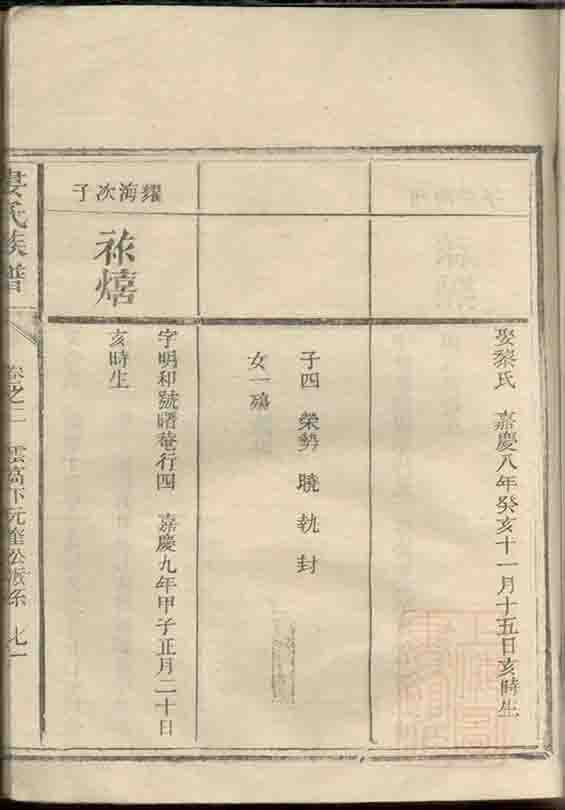 娶黎氏 嘉慶八年癸亥十一月十五日亥時生
子四 榮勢 曉 執 封
女一殤
耀海次子
祿熺
字明和號曙菴行四 嘉慶九年甲子正月二十日
亥時生
婁氏族譜
卷之二 雲高下元奎公派系 七一